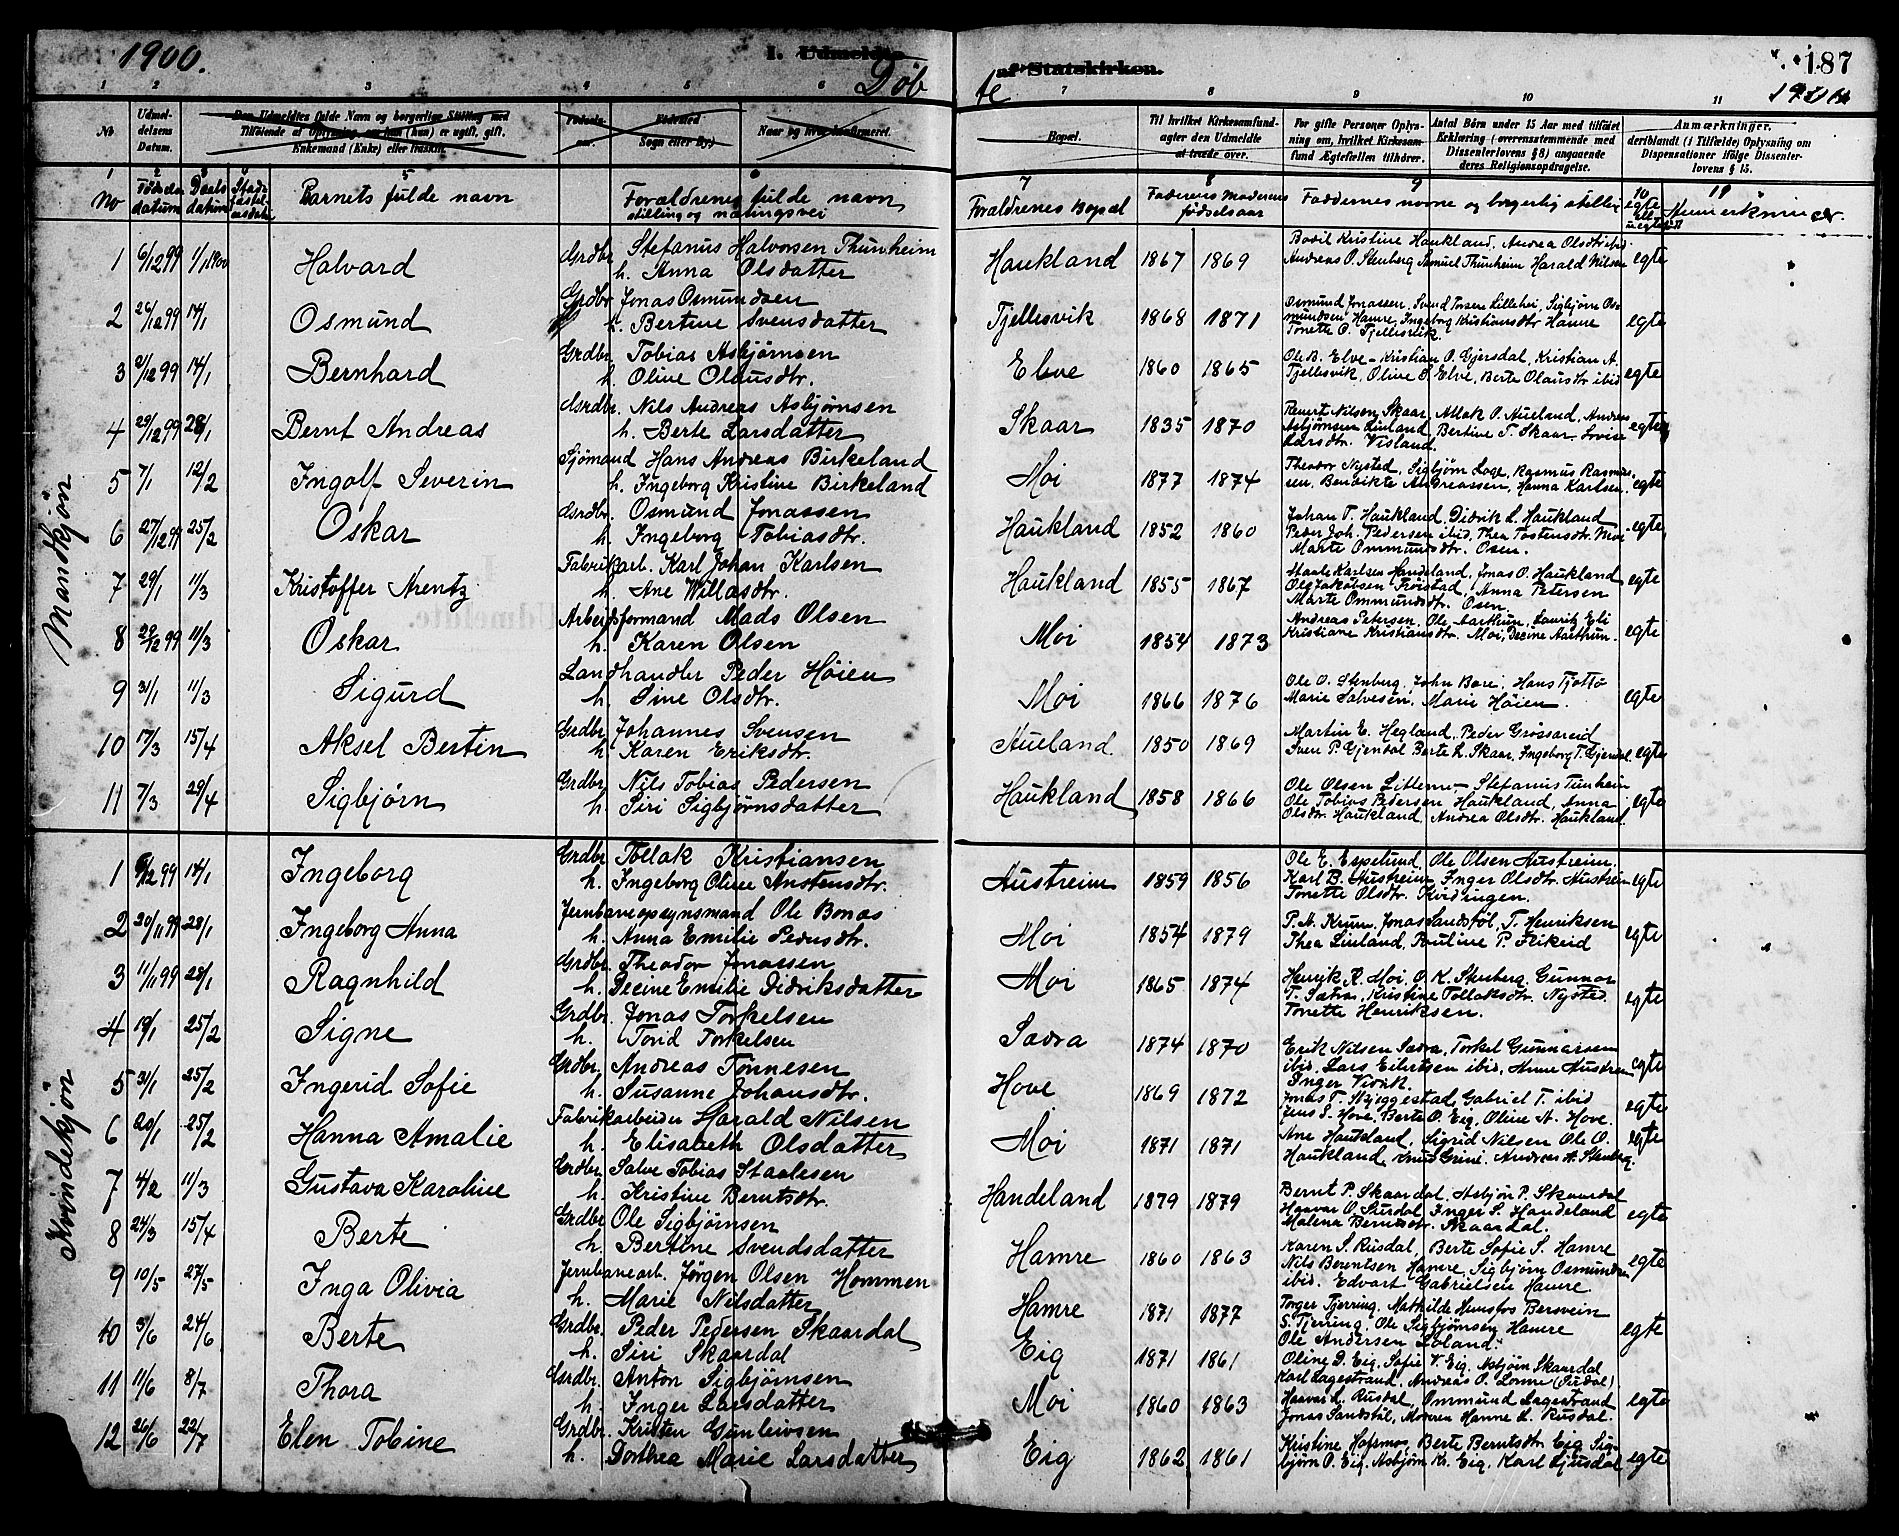 1900.
I. Udmeldte af Statskirken.
Döbte
187
1 2 3 4 5 6 7 8 9 10 11
No
Udmeldelsens Datum.
Den Udmeldtes fulde Navn og borgerlige Stilling med
Tilföiende af Oplysning, om han (hun) er ugift, gift,
Enkemand (Enke) eller fraskilt.
Födsels-aar.
Födested
Sogn eller By).
Naar og hvor konfirmeret.
Bopæl.
Til hvilket Kirkesamfund agter den Udmeldte at træde over.
For gifte Personer Oplysning om, hvilket Kirkesamfund Ægtefællen tilhörer.
Antal Börn under 15 Aar med tilföiet Erklæring (overensstemmende med Dissenterlovens § 8) angaaende deres Religionsopdragelse.
Anmærkninger, deriblandt (i Tilfælde) Oplysning om Dispensationer ifölge Dissenterlovens § 15.
No
Födselsdatum
Daabsdatum
Barnets fulde navn
Forældrenes fulde navn, stilling og næringsvei
Forældrenes Bopæl
Faderens Moderens födselsaar
Faddernes navne og borgerlig stilling
egte ell. uegte
Anmerkninger
Mandkjön
1 6/12 99 1/1 1900 Halvard Grdbr. Stefanus Halvorsen Thunheim
h. Anna Olsdatter Haukland 1867 1869 Bodil Kristine Haukland, Andrea Olsdtr ibid.
Andreas O. Stenberg Samuel Thunheim Harald Nilsen egte
2 24/12 99 14/1 Osmund Grdbr Jonas Osmundsen
h. Bertine Svensdatter Tjellesvik 1868 1871 Osmund Jonassen, Svend Tosene Lillehei, Sigbjörn Os-
mundsen Hamre, Ingeborg Kristiansdtr Hamre
Tonette O. Tjellesvik. egte
3 2/12 99 14/1 Bernhard Grdbr. Tobias Asbjörnsen
h. Oline Olausdtr. Elve 1860 1865 Ole B. Elve - Kristian O. Gjersdal, Kristian A.
Tjellesvik, Oline O Elve, Berte Olausdtr ibid egte
4 29/12 99 28/1 Bernt Andreas Grdbr. Nils Andreas Asbjörnsen
h. Berte Larsdatter Skaar 1835 1870 Reiert Nilsen Skaar, Atlak O. Aueland, Andreas
Asbjörnsen Linland, Bertine T. Skaar, Lovise
Larsdtr. Visland. egte
5 7/1 12/2 Ingolf Severin Sjömand Hans Andreas Birkeland
h. Ingeborg Kristine Birkeland Moi 1877 1874 Theodor Nysted, Sigbjörn Loge, Rasmus Rasmus-
sen, Benedikte Andreassen, Hanna Karlsen. egte
6 27/12 99 25/2 Oskar Grdbr. Osmund Jonassen
h. Ingeborg Tobiasdtr. Haukland 1852 1860 Johan T. Haukland, Didrik L. Haukland
Peder Joh. Pedersen ibid, Thea Tostensdtr. Moi
Marte Ommundsdtr. Osen. egte
7 29/1 11/3 Kristoffer Arentz Fabrikarb. Karl Johan Karlsen
h. Ane Willasdtr. Haukland 1855 1867 Staale Karlsen Handeland, Jonas O. Haukland
Ole Jakobsen Fröistad, Anna Petersen
Marte Ommundsdtr. Osen egte
8 29/12 99 11/3 Oskar Arbeidsformand Mads Olsen
h. Karen Olsen Moi 1854 1873 Andreas Petersen, Ole Aarthun, Lauritz Eli
Kristiane Kristiansdtr. Moi, Decine Aarthun. egte
9 31/1 11/3 Sigurd Landhandler Peder Höien
h. Sine Olsdtr. Moi 1866 1876 Ole O. Stenberg, John Bore, Hans Tjottö
Marie Salvesen, Marie Höien. egte
10 17/3 15/4 Aksel Bertin Grdbr. Johannes Svensen
h. Karen Eriksdtr. Aueland 1850 1869 Martin E. Hegland, Peder Grössereid
Sven P. Gjendal Berte L. Skaar, Ingeborg T. Gjendal egte
11 7/3 29/4 Sigbjörn Grdbr. Nils Tobias Pedersen
h. Siri Sigbjörnsdatter Haukland 1858 1866 Ole Olsen Litlemo - Stefanus Tunheim
Ole Tobias Pedersen Haukland, Anna
Olsdtr. Haukland Andrea Olsdtr. Haukland. egte
Kvindekjön
1 9/12 99 14/1 Ingeborg Grdbr Tollak Kristiansen
h. Ingeborg Oline Anstensdtr. Austreim 1859 1856 Ole E. Espelund, Ole Olsen Austreim.
Karl B. Austreim Inger Olsdtr. Austreim
Tonette Olsdtr. Kvidingen. egte
2 20/11 99 28/1 Ingeborg Anna Jernbaneopsynsmand Ole Bonas
h. Anna Emilie Pedersdtr. Moi 1854 1879 P. A. Krum, Jonas Sandstöl, T. Henriksen
Thea Linland, Pauline P. Flikeid egte
3 11/11 99 28/1 Ragnhild Grdbr. Theodor Jonassen
h. Decine Emilie Didriksdatter Moi 1865 1874 Henrik R. Moi, O. K. Stenberg, Gunnar
T. Sætra, Kristine Tollaksdtr. Nysted.
Tonette Henriksen. egte
4 19/1 25/2 Signe Grdbr. Jonas Torkelsen
h. Torid Torkelsen Sædra 1874 1870 Erik Nilsen Sædra, Torkel Gunnarsen
ibid, Lars Eilertsen ibid, Anne Austreim
Inger Virak. egte
5 31/1 25/2 Ingerid Sofie Grdbr. Andreas Tönnesen
h. Susanne Johansdtr. Hove 1869 1872 Jonas T. Skjeggestad, Gabriel T. ibid
Jens S. Hove, Berte O. Eig, Oline A. Hove. egte
6 20/1 25/2 Hanna Amalie Fabrikarbeider Harald Nilsen
h. Elisabeth Olsdatter Moi 1871 1871 Ane Haukland, Sigrid Nilsen Ole O.
Haukland, Knud Grini. Andreas A. Stenberg. egte
7 4/2 11/3 Gustava Karoline Grdbr. Salve Tobias Staalesen
h. Kristine Berntsdtr. Handeland 1879 1879 Bernt P. Skaardal, Asbjörn P. Skaardal
Haavar O. Surdal, Inger S. Handeland
Malena Berntsdtr. Skaardal. egte
8 24/3 15/4 Berte Grdbr Ole Sigbjörnsen
h. Bertine Svendsdatter Hamre 1860 1863 Karen S. Rusdal, Berte Sofie S. Hamre
Nils Berentsen Hamre, Sigbjörn Osmundsen
ibid. Edvart Gabrielsen Hamre. egte
9 10/5 27/5 Inga Olivia Jernbanearb. Jörgen Olsen Hommen
h. Marie Nilsdatter Hamre 1871 1877 Torger Tjerring, Mathilde Hunsbos Bersvein
S. Tjerring. Ole Sigbjörnsen Hamre
Ole Andersen Loland. egte
10 3/6 24/6 Berte Grdbr. Peder Pedersen Skaardal
h. Siri Skaardal Eig 1871 1861 Oline D. Eig, Sofie V. Eig, Asbjörn Skaardal
Karl Lagestrand, Andreas O. Lonne (Sirdal)
11 11/6 8/7 Thora Grdbr. Anton Sigbjörnsen
h. Inger Larsdatter Moi 1860 1863 Haavar L. Rusdal, Ommund Lagestrand
Jonas Sandstöl, Moren Hanne L. Rusdal. egte
12 26/6 22/7 Elen Tobine Grdbr. Kristen Gunleivsen
h. Dorthea Marie Larsdatter Eig 1862 1861 Kristine Hofsmo, Berte Berntsdtr Eig Sig-
björn O. Eig, Asbjörn Kr. Eig, Karl Ljusdal egte